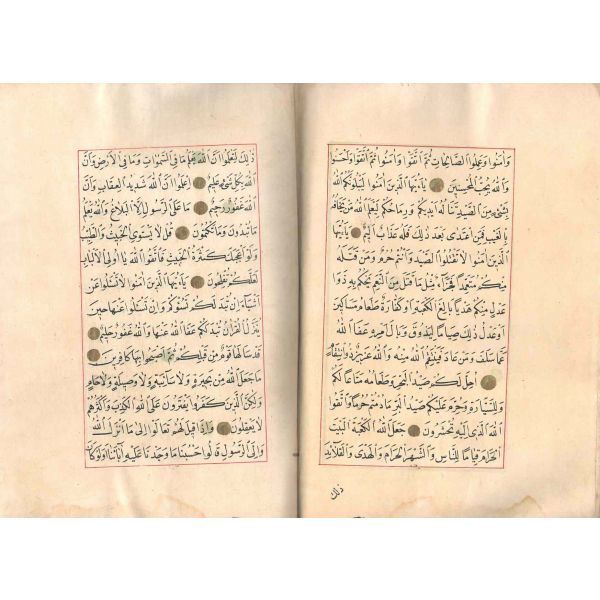 وَاٰمَنُوا وَعَمِلُوا الصَّالِحَاتِ ثُمَّ اتَّقَوْا وَاٰمَنُوا ثُمَّ اتَّقَوْا وَاَحْسَنُوا
وَاللّٰهُ يُحِبُّ الْمُحْسِنِينَ يَا اَيُّهَا الَّذِينَ اٰمَنُوا لَيَبْلُوَنَّكُمُ اللّٰهُ
بِشَىْءٍ مِنَ الصَّيْدِ تَنَالُهُ اَيْدِيكُمْ وَرِمَاحُكُمْ لِيَعْلَمَ اللّٰهُ مَنْ يَخَافُهُ
بِالْغَيْبِ فَمَنِ اعْتَدٰى بَعْدَ ذٰلِكَ فَلَهُ عَذَابٌ اَلِيمٌ يَا اَيُّهَا
الَّذِينَ اٰمَنُوا لَا تَقْتُلُوا الصَّيْدَ وَاَنْتُمْ حُرُمٌ وَمَنْ قَتَلَهُ
مِنْكُمْ مُتَعَمِّدًا فَجَزَاءٌ مِثْلُ مَا قَتَلَ مِنَ النَّعَمِ يَحْكُمُ بِهِ ذَوَا
عَدْلٍ مِنْكُمْ هَدْيًا بَالِغَ الْكَعْبَةِ اَوْ كَفَّارَةٌ طَعَامُ مَسَاكِينَ
اَوْ عَدْلُ ذٰلِكَ صِيَامًا لِيَذُوقَ وَبَالَ اَمْرِهِ عَفَا اللّٰهُ
عَمَّا سَلَفَ وَمَنْ عَادَ فَيَنْتَقِمُ اللّٰهُ مِنْهُ وَاللّٰهُ عَزِيزٌ ذُو انْتِقَامٍ
اُحِلَّ لَكُمْ صَيْدُ الْبَحْرِ وَطَعَامُهُ مَتَاعًا لَكُمْ
وَلِلسَّيَّارَةِ وَحُرِّمَ عَلَيْكُمْ صَيْدُ الْبَرِّ مَا دُمْتُمْ حُرُمًا وَاتَّقُوا
اللّٰهَ الَّذِى اِلَيْهِ تُحْشَرُونَ جَعَلَ اللّٰهُ الْكَعْبَةَ الْبَيْتَ
الْحَرَامَ قِيَامًا لِلنَّاسِ وَالشَّهْرَ الْحَرَامَ وَالْهَدْىَ وَالْقَلَائِدَ
ذٰلِكَ
ذٰلِكَ لِتَعْلَمُوا اَنَّ اللّٰهَ يَعْلَمُ مَا فِى السَّمٰوَاتِ وَمَا فِى الْاَرْضِ وَاَنَّ
اللّٰهَ بِكُلِّ شَىْءٍ عَلِيمٌ اِعْلَمُوا اَنَّ اللّٰهَ شَدِيدُ الْعِقَابِ وَاَنَّ
اللّٰهَ غَفُورٌ رَحِيمٌ مَا عَلَى الرَّسُولِ اِلَّا الْبَلَاغُ وَاللّٰهُ يَعْلَمُ
مَا تُبْدُونَ وَمَا تَكْتُمُونَ قُلْ لَا يَسْتَوِى الْخَبِيثُ وَالطَّيِّبُ
وَلَوْ اَعْجَبَكَ كَثْرَةُ الْخَبِيثِ فَاتَّقُوا اللّٰهَ يَا اُولِى الْاَلْبَابِ
لَعَلَّكُمْ تُفْلِحُونَ يَا اَيُّهَا الَّذِينَ اٰمَنُوا لَا تَسْئَلُوا عَنْ
اَشْيَاءَ اِنْ تُبْدَ لَكُمْ تَسُؤْكُمْ وَاِنْ تَسْئَلُوا عَنْهَا حِينَ
يُنَزَّلُ الْقُرْاٰنُ تُبْدَ لَكُمْ عَفَا اللّٰهُ عَنْهَا وَاللّٰهُ غَفُورٌ حَلِيمٌ
قَدْ سَاَلَهَا قَوْمٌ مِنْ قَبْلِكُمْ ثُمَّ اَصْبَحُوا بِهَا كَافِرِينَ
مَا جَعَلَ اللّٰهُ مِنْ بَحِيرَةٍ وَلَا سَائِبَةٍ وَلَا وَصِيلَةٍ وَلَا حَامٍ
وَلٰكِنَّ الَّذِينَ كَفَرُوا يَفْتَرُونَ عَلَى اللّٰهِ الْكَذِبَ وَاَكْثَرُهُمْ
لَا يَعْقِلُونَ وَاِذَا قِيلَ لَهُمْ تَعَالَوْا اِلٰى مَا اَنْزَلَ اللّٰهُ
وَاِلَى الرَّسُولِ قَالُوا حَسْبُنَا مَا وَجَدْنَا عَلَيْهِ اٰبَاءَنَا اَوَلَوْ كَانَ